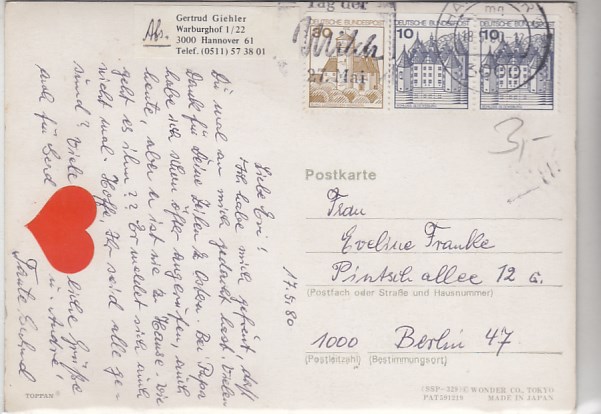 Abs.
Gertrud Giehler
Warburghof 1/22
3000 Hannover 61
Telef. (0511) 57 38 01
Tag der
Milch
27. Mai
30
DEUTSCHE BUNDESPOST
10
DEUTSCHE BUNDESPOST
10
DEUTSCHE BUNDESPOST
3,-
17.5.80
Liebe Evi!
Ich habe mich gefreut, daß
Du mal an mich gedacht hast. Vielen
Dank für Deine Zeilen z. Ostern. Bei Papa
habe ich schon öfter angerufen, auch
heute, aber er ist nie z. Hause. Wie
geht es ihm?? Er meldet sich auch
nicht mal. Hoffe, Ihr seid alle ge-
sund? Viele liche Grüße
auch für Gerd u. André!
Tante Gertrud
Postkarte
Frau
Eveline Franke
Pintschallee 12 a.
(Postfach oder Straße und Hausnummer)
1000 Berlin 47
(Postleitzahl) (Bestimmungsort)
TOPPAN
WONDER CO., TOKYO
PAT591219 MADE IN JAPAN